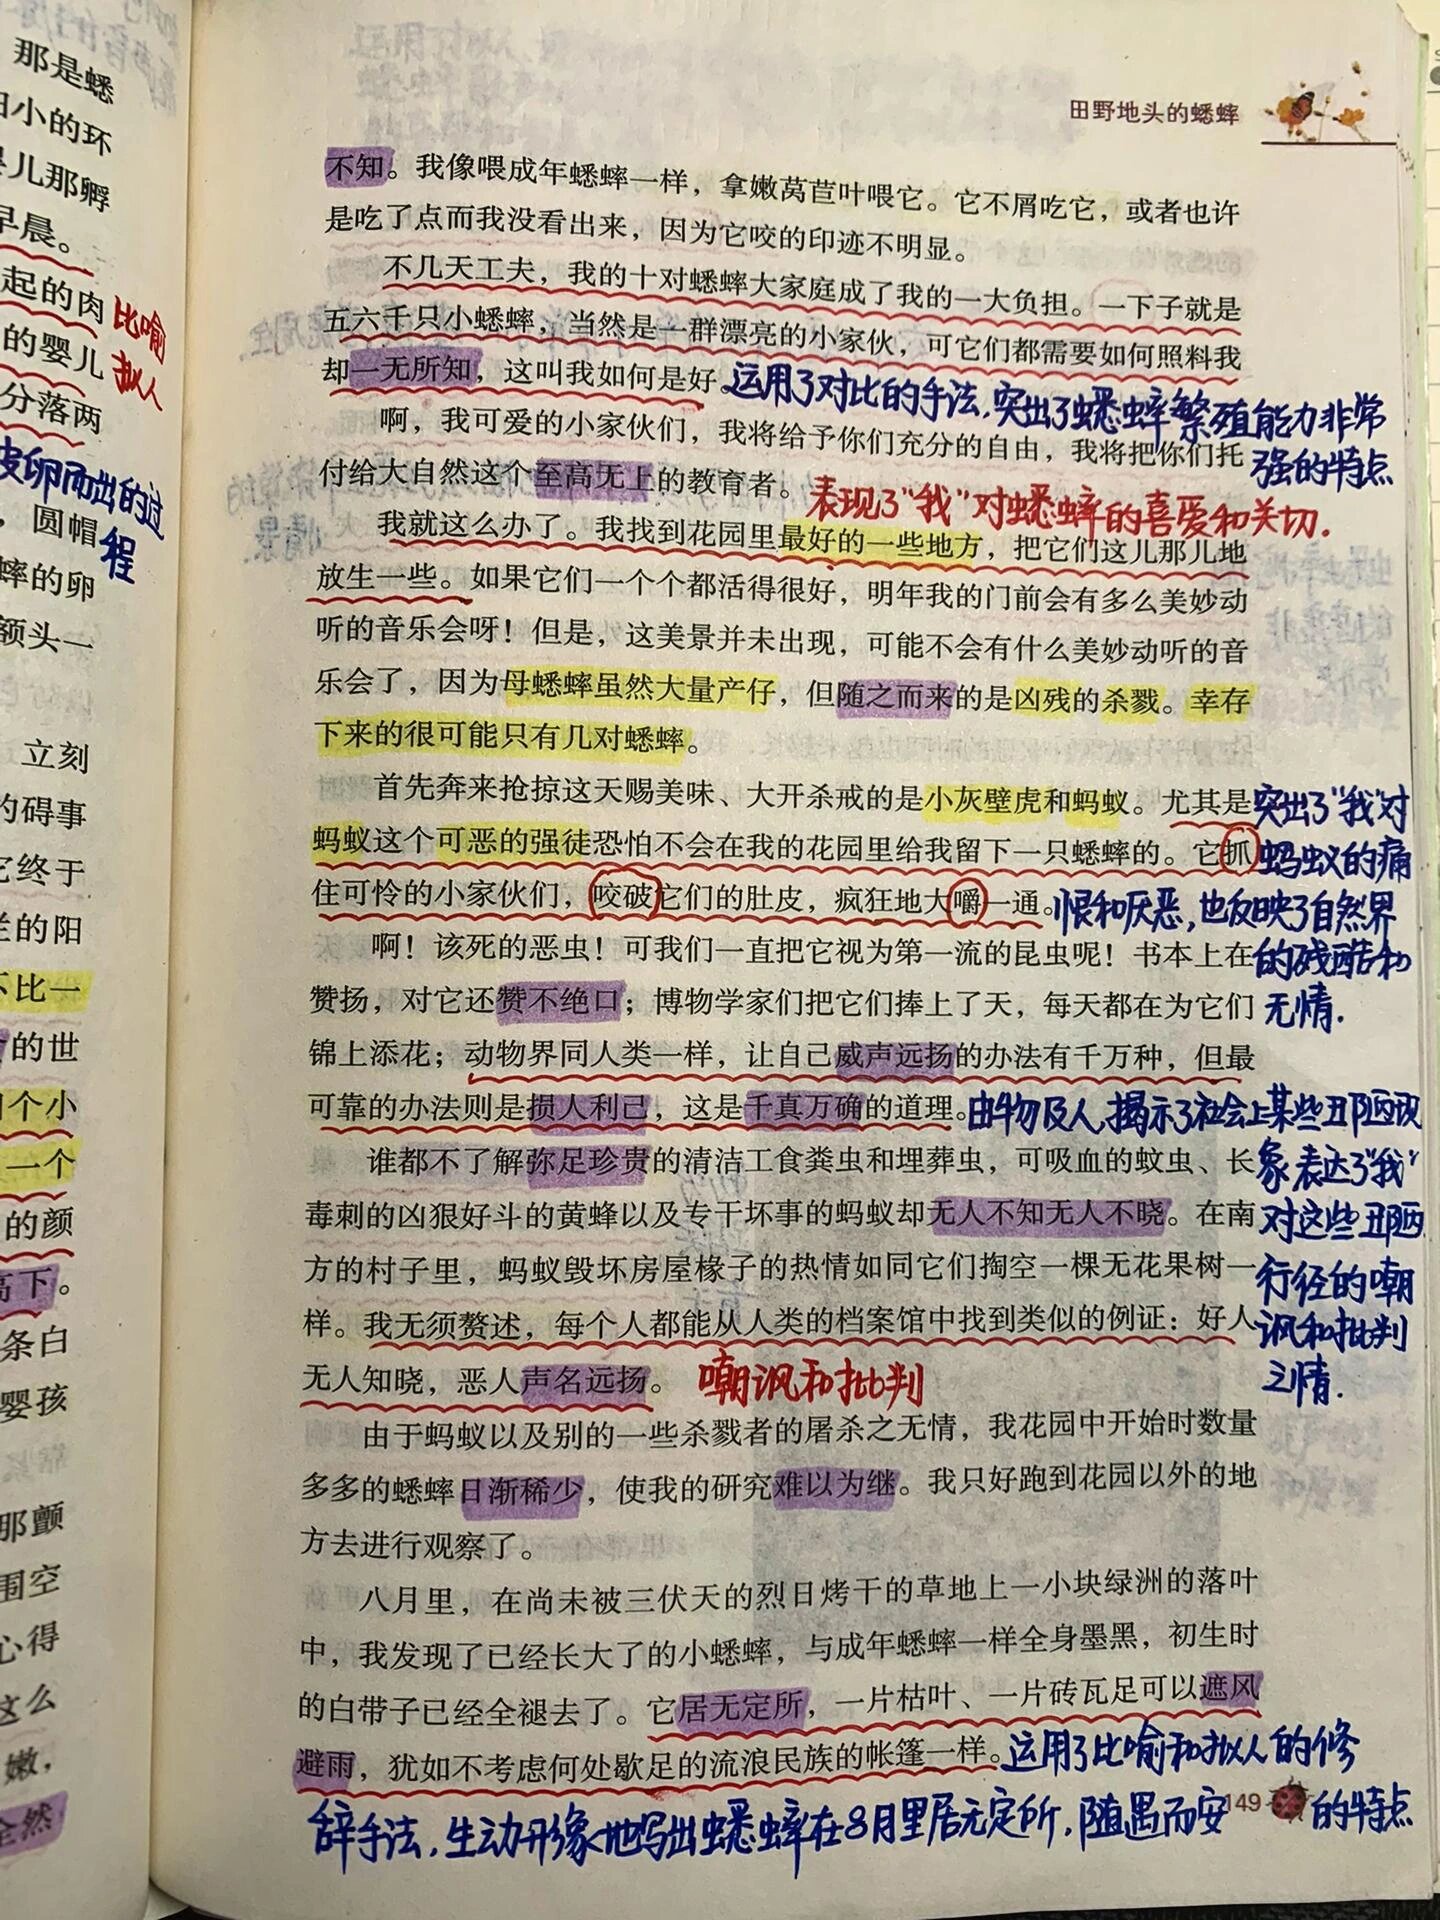 那是蟋
小的环
儿那孵
早晨。
起的肉
的婴儿
比喻
拟人
分落两
皮卵而出的过
程
，圆帽
蟀的卵
额头一
立刻
的碍事
它终于
的阳
不比一
的世
个小
一个
的颜
高下。
条白
婴孩
那颤
围空
心得
这么
嫩，
全然
田野地头的蟋蟀
不知。我像喂成年蟋蟀一样，拿嫩莴苣叶喂它。它不屑吃它，或者也许
是吃了点而我没看出来，因为它咬的印迹不明显。
不几天工夫，我的十对蟋蟀大家庭成了我的一大负担。一下子就是
五六千只小蟋蟀，当然是一群漂亮的小家伙，可它们都需要如何照料我
却一无所知，这叫我如何是好。
运用了对比的手法，突出了蟋蟀繁殖能力非常
强的特点
啊，我可爱的小家伙们，我将给予你们充分的自由，我将把你们托
付给大自然这个至高无上的教育者。
表现了“我”对蟋蟀的喜爱和关切.
我就这么办了。我找到花园里最好的一些地方，把它们这儿那儿地
放生一些。如果它们一个个都活得很好，明年我的门前会有多么美妙动
听的音乐会呀！但是，这美景并未出现，可能不会有什么美妙动听的音
乐会了，因为母蟋蟀虽然大量产仔，但随之而来的是凶残的杀戮。幸存
下来的很可能只有几对蟋蟀。
首先奔来抢掠这天赐美味、大开杀戒的是小灰壁虎和蚂蚁。尤其是
蚂蚁这个可恶的强徒恐怕不会在我的花园里给我留下一只蟋蟀的。它抓
住可怜的小家伙们，咬破它们的肚皮，疯狂地大嚼一通。
突出了“我”对
蚂蚁的痛
恨和厌恶，也反映了自然界
的残酷和
无情.
啊！该死的恶虫！可我们一直把它视为第一流的昆虫呢！书本上在
赞扬，对它还赞不绝口；博物学家们把它们捧上了天，每天都在为它们
锦上添花；动物界同人类一样，让自己威声远扬的办法有千万种，但最
可靠的办法则是损人利己，这是千真万确的道理。
由物及人，揭示了社会上某些丑陋现
象，表达了“我”
对这些丑陋
行径的嘲
讽和批判
之情.
谁都不了解弥足珍贵的清洁工食粪虫和埋葬虫，可吸血的蚊虫、长
毒刺的凶狠好斗的黄蜂以及专干坏事的蚂蚁却无人不知无人不晓。在南
方的村子里，蚂蚁毁坏房屋椽子的热情如同它们掏空一棵无花果树一
样。我无须赘述，每个人都能从人类的档案馆中找到类似的例证：好人
无人知晓，恶人声名远扬。
嘲讽和批判
由于蚂蚁以及别的一些杀戮者的屠杀之无情，我花园中开始时数量
多多的蟋蟀日渐稀少，使我的研究难以为继。我只好跑到花园以外的地
方去进行观察了。
八月里，在尚未被三伏天的烈日烤干的草地上一小块绿洲的落叶
中，我发现了已经长大了的小蟋蟀，与成年蟋蟀一样全身墨黑，初生时
的白带子已经全褪去了。它居无定所，一片枯叶、一片砖瓦足可以遮风
避雨，犹如不考虑何处歇足的流浪民族的帐篷一样。
运用了比喻和拟人的修
辞手法，生动形象地写出蟋蟀在8月里居无定所，随遇而安的特点
149